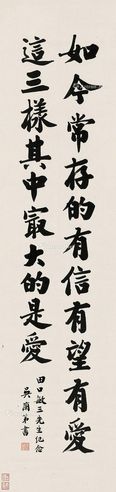 如今常存的有信有望有愛
這三樣其中㝡大的是愛
田口敏三先生紀念
吳蘭弟書